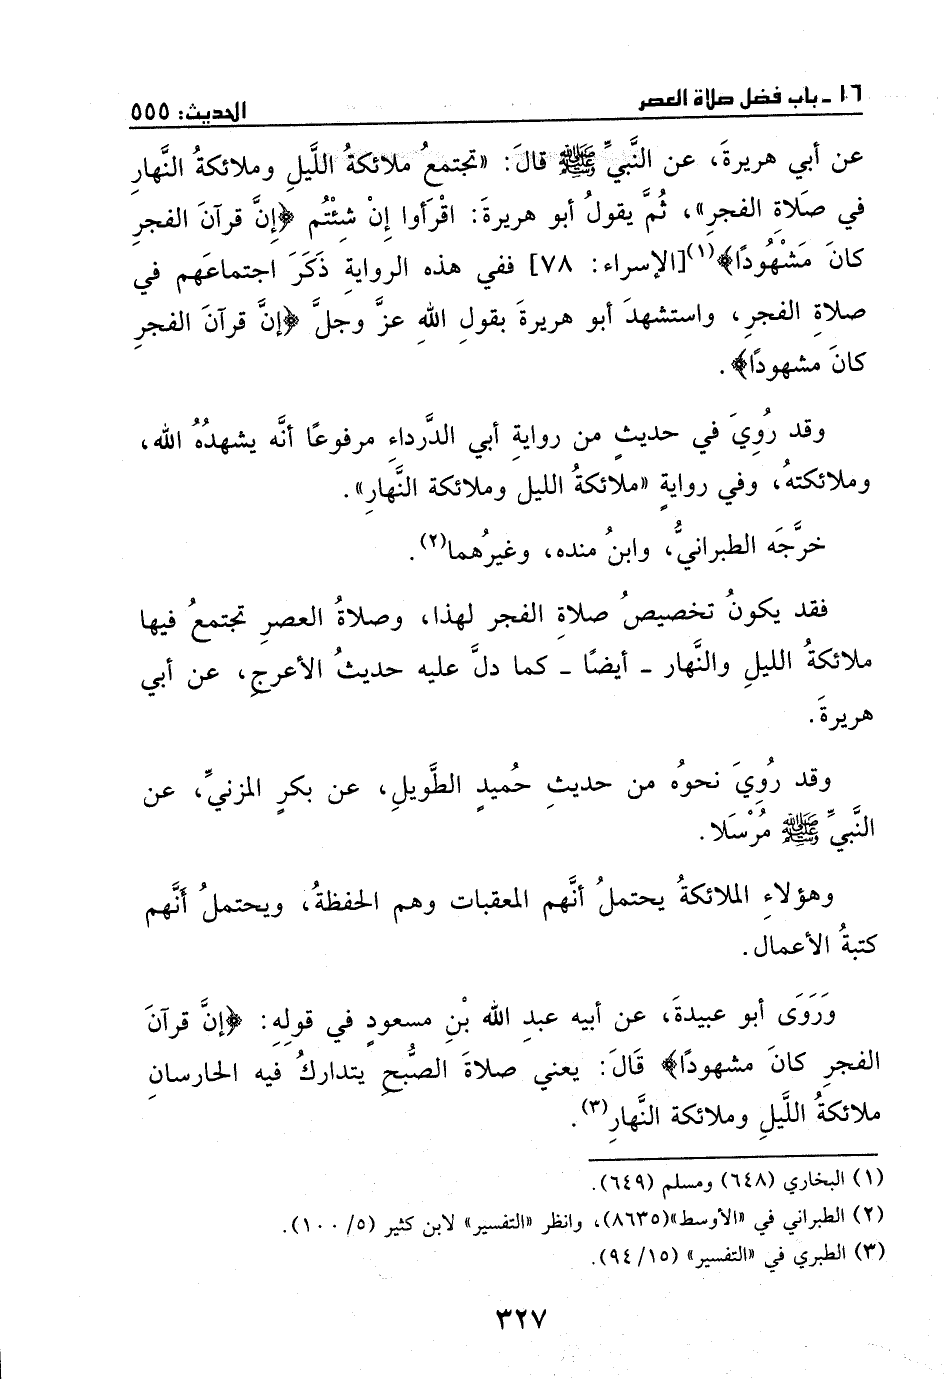 ١٦ ـ باب فضل صلاة العصر
الحديث: ٥٥٥
عن أبي هريرةَ، عن النَّبيِّ ﷺ قالَ: «تجتمعُ ملائكةُ اللَّيلِ وملائكةُ النَّهارِ
في صلَاةِ الفجرِ»، ثُمَّ يقولُ أبو هريرةَ: اقْرأوا إنْ شِئْتُم ﴿إنَّ قرآنَ الفجرِ
كانَ مَشْهُودًا﴾(١)[الإسراء: ٧٨] ففي هذه الروايةِ ذَكَرَ اجتماعَهم في
صلاةِ الفجرِ، واستشهدَ أبو هريرةَ بقولِ اللهِ عزَّ وجلَّ ﴿إنَّ قرآنَ الفجرِ
كانَ مشهودًا﴾.
وقد رُوِيَ في حديثٍ من روايةِ أبي الدَّرداءِ مرفوعًا أنَّه يشهدُهُ الله،
وملائكتهُ، وفي روايةٍ «ملائكةُ الليل وملائكة النَّهارِ».
خرَّجَه الطبرانيُّ، وابنُ منده، وغيرُهما(٢).
فقد يكونُ تخصيصُ صلاةِ الفجر لهذا، وصلاةُ العصرِ تجتمعُ فيها
ملائكةُ الليلِ والنَّهار ـ أيضًا ـ كما دلَّ عليه حديثُ الأعرجِ، عن أبي
هريرةَ.
وقد رُوِيَ نحوهُ من حديثِ حُميدٍ الطَّويلِ، عن بكرٍ المزنيِّ، عن
النَّبيِّ ﷺ مُرْسَلا.
وهؤلاءِ الملائكةُ يحتملُ أنَّهم المعقبات وهم الحفظةُ، ويحتملُ أَنَّهم
كتبةُ الأعمال.
وَرَوَى أبو عبيدةَ، عن أبيه عبدِ الله بْنِ مسعودٍ في قولِهِ: ﴿إنَّ قرآنَ
الفجرِ كانَ مشهودًا﴾ قَالَ: يعني صلاةَ الصُّبحِ يتداركُ فيه الحارسانِ
ملائكةُ اللَّيلِ وملائكة النَّهارِ(٣).
(١) البخاري (٦٤٨) ومسلم (٦٤٩).
(٢) الطبراني في «الأوسط»(٨٦٣٥)، وانظر «التفسير» لابن كثير (٥/ ١٠٠).
(٣) الطبري في «التفسير» (١٥/ ٩٤).
٣٢٧